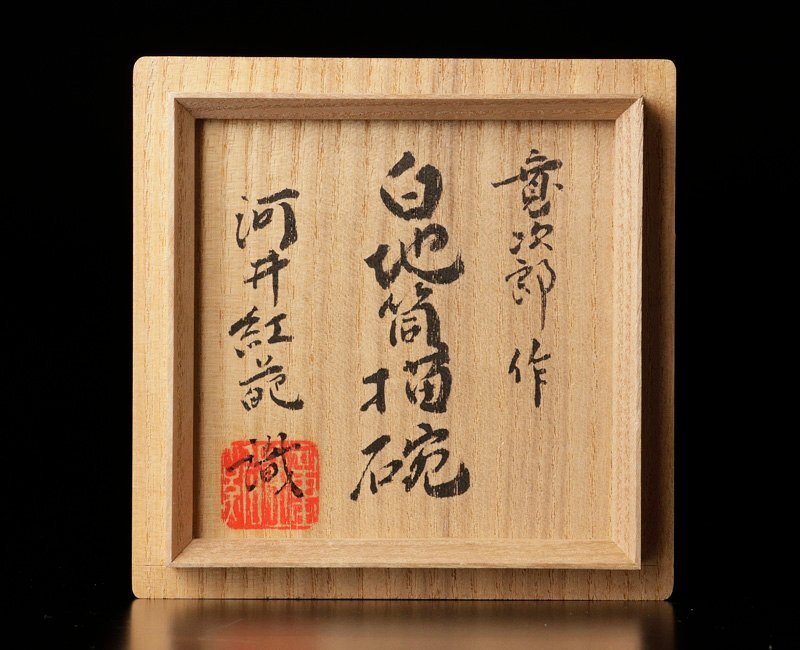 寛次郎 作
白地筒描碗
河井紅葩 識